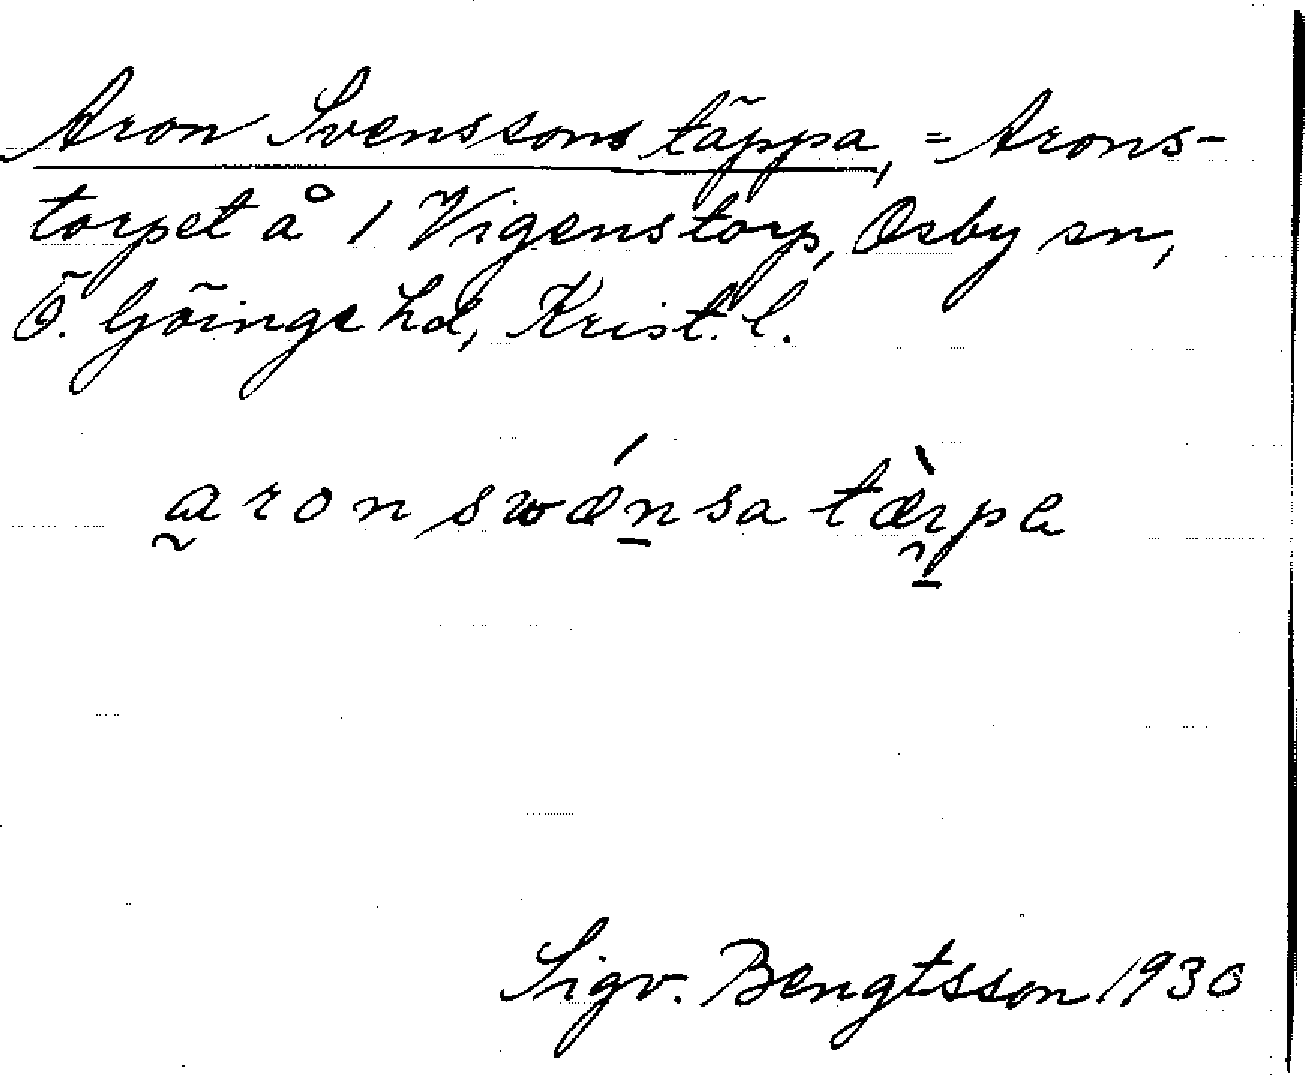 Aron Svenssons täppa, = Arons-
torpet å 1 Vigenstorp, Osby sn,
Ö. Göinge hd, Krist. l.
aron swænsa tærpa
Sigv. Bengtsson 1930